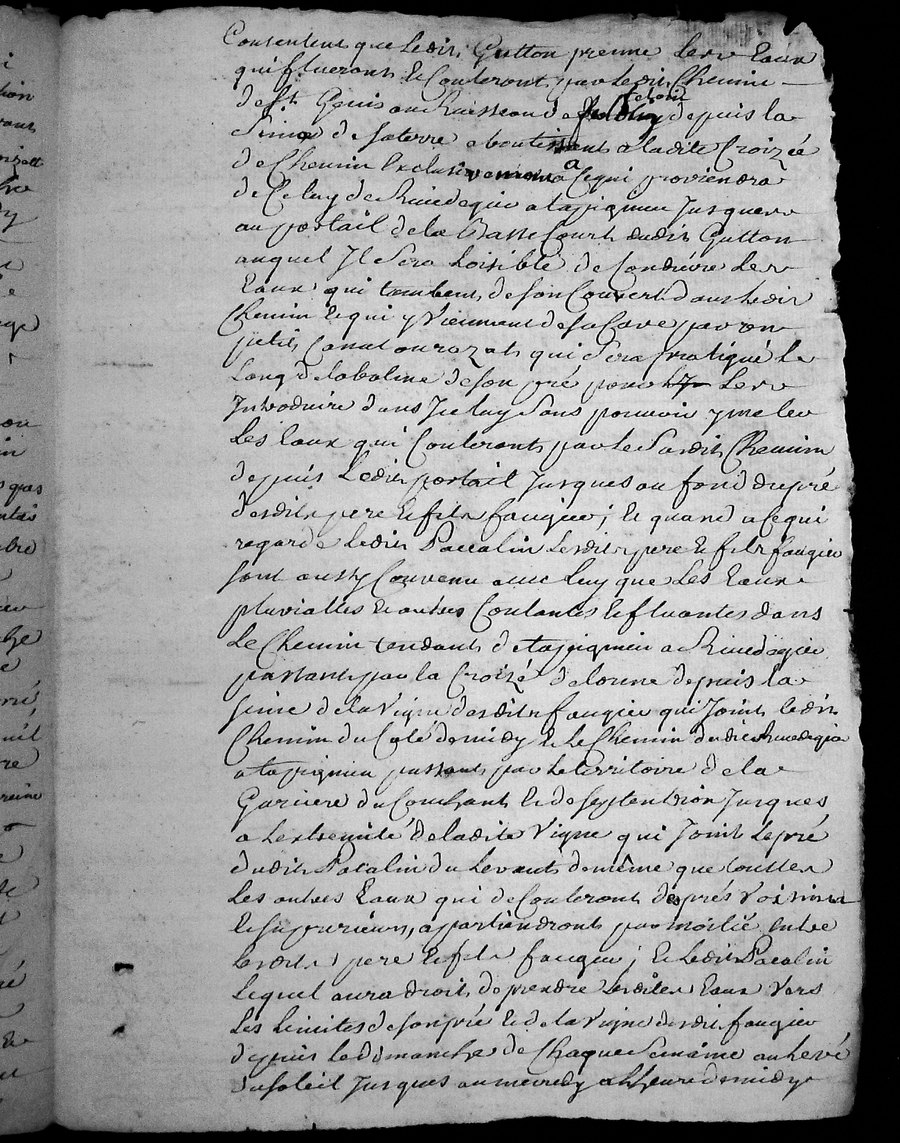 Consentent que ledit Gutton prenne les Eaux
qui flueront et Couleront par ledit Chemin
de st Genis au Ruisseau de depuis la
Sime de sa terre aboutissant a ladite Croizée
de Chemin Exclusivement a Ce qui proviendra
de Celuy de Rivedegier a tapignieu Jusques
au portail de la Basse Court dudit Gutton
auquel Il sera loisible de Conduire les
Eaux qui tombent de son Couvert dans ledit
Chemin et qui y Viennent de sa Cave par un
petit Canal ou razat qui sera pratiqué le
Long de la balme de son pré pour les
Introduire dans Iceluy sans pouvoir y meler
Les Eaux qui Couleront par le susdit Chemin
depuis Ledit portail Jusques au fond du pré
desdits pere et fils faugier; et quand a Ce qui
regarde ledit Paccalin lesdits pere et fils faugier
sont aussy Convenu avec luy que les Eaux
pluvialles et autres Coulantes et fluantes dans
Le Chemin tendant de tapignieu a Rivedegier
passant par la Croizé de lorme depuis la
sime de la Vigne desdits faugier qui Joint ledit
Chemin du Coté de midy et le Chemin dudit Rivedegier
a tapignieu passant par le territoire de la
Garciere du Couchant et de septentrion Jusques
a Lextremité de ladite Vigne qui Joint le pré
dudit Pacalin du Levant de même que touttes
Les autres Eaux qui deCouleront des prés Voisins
et supurieurs, apartiendront par moitié entre
lesdits pere et fils faugier; et ledit Pacalin
Lequel aura droit de prendre lesdites Eaux vers
Les Limites de son pré et de la Vigne desdits faugier
depuis le dimanche de Chaque Semaine au levé
du soleil Jusques au mecredy a lheure de midy